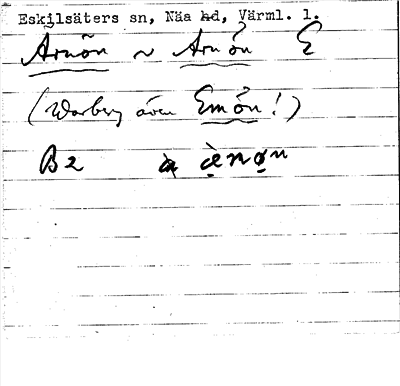 Eskilsäters sn, Näs hd, Värml. l.
Arnön ~ Arnön E
(Warberg även Emön!)
B2 ànọn